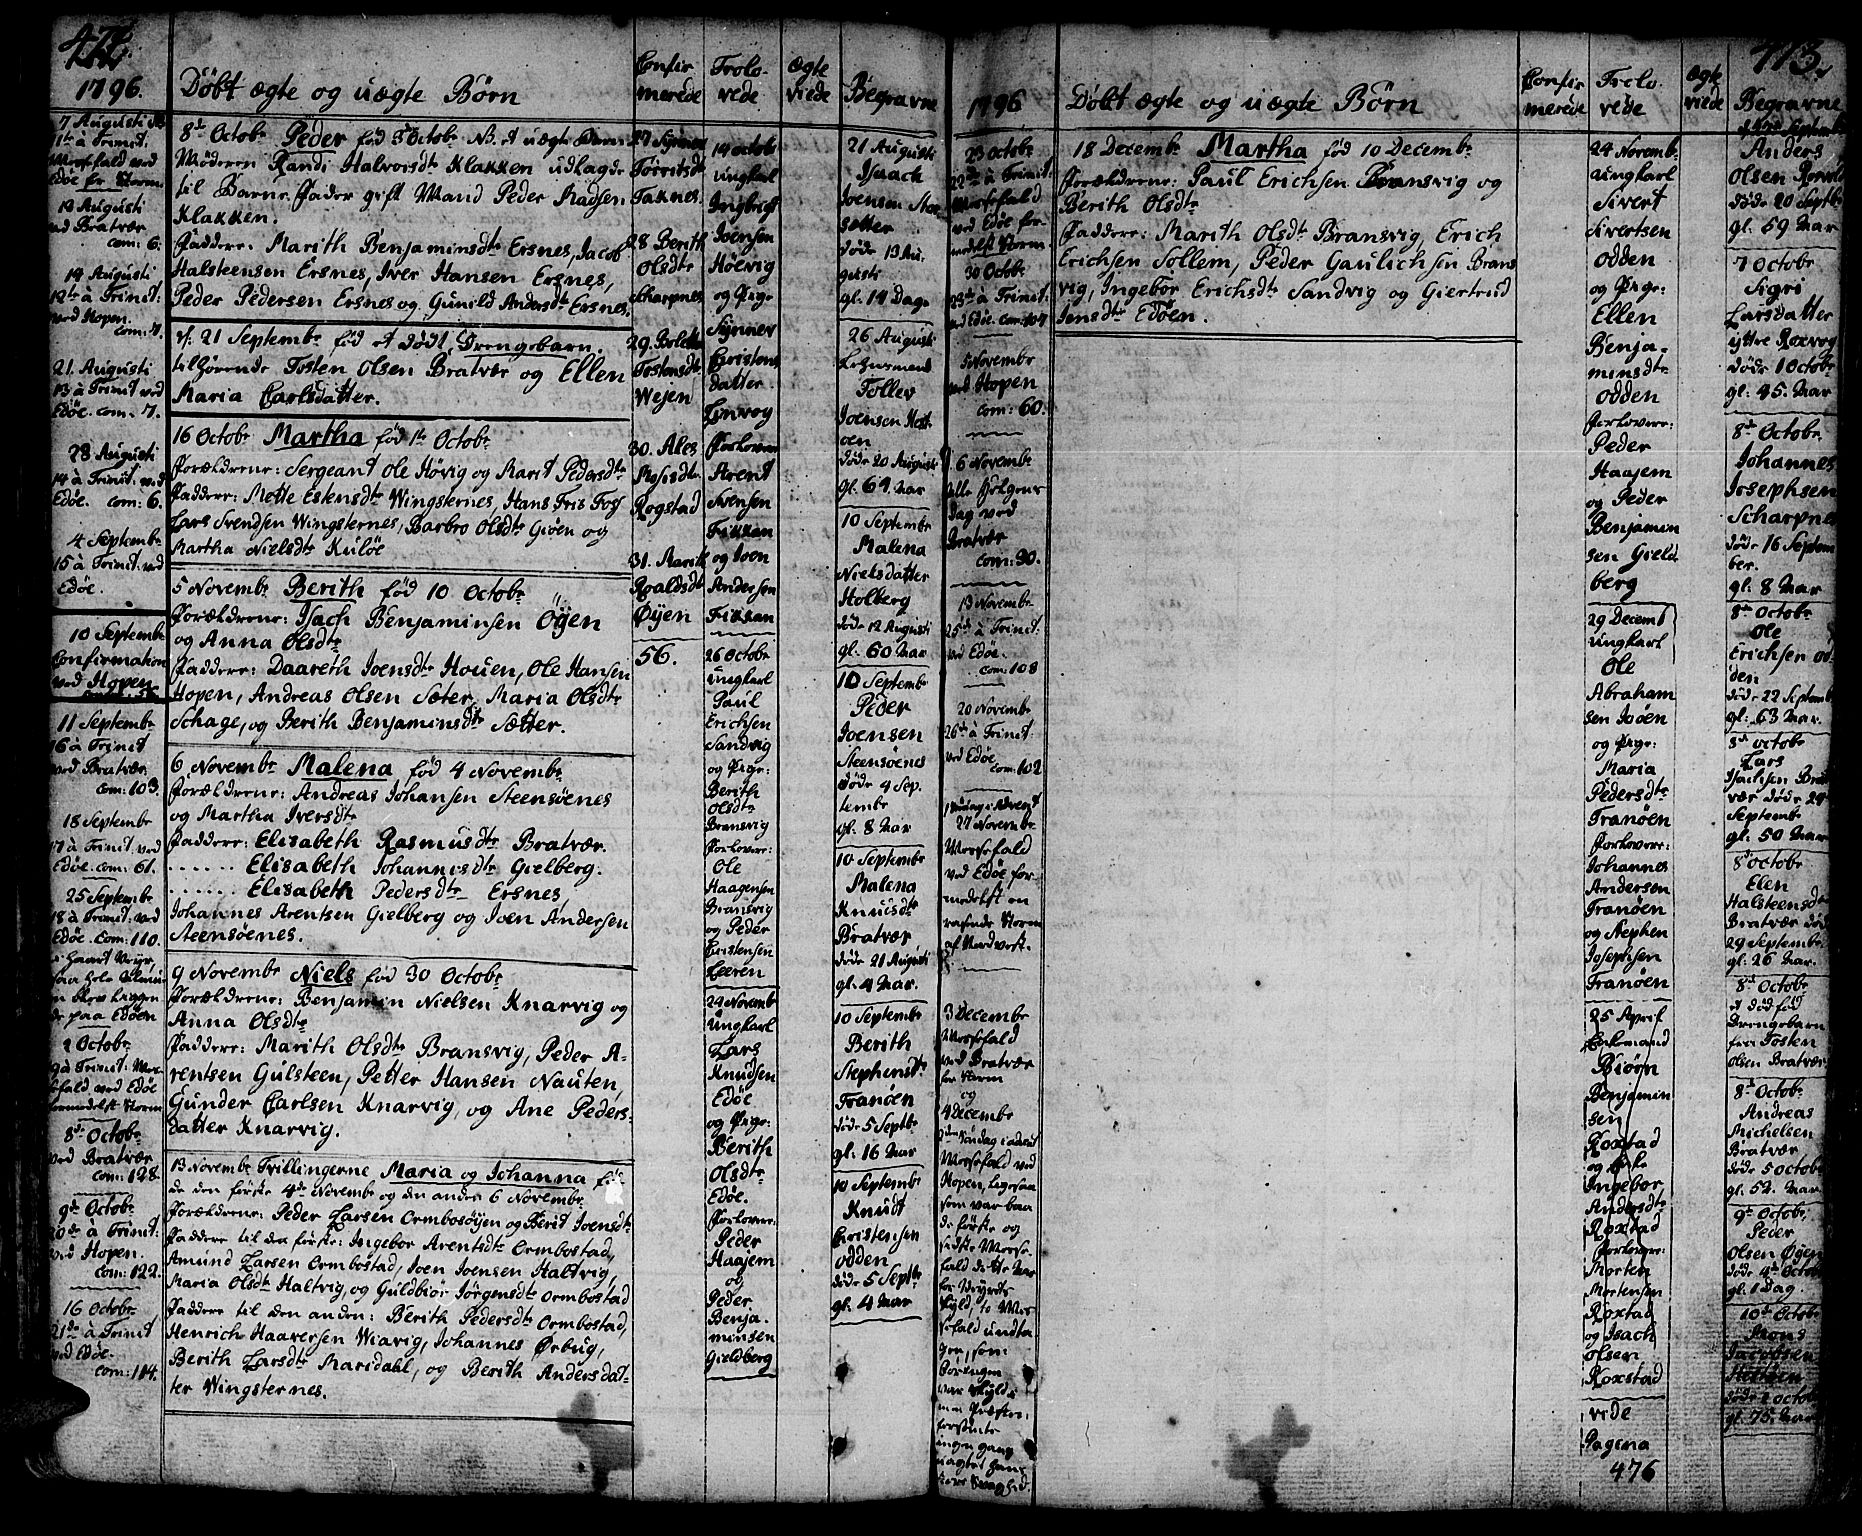 1796.
Døbt ægte og uægte Børn
Confir
merede
Trolo-
vede
Ægte
viede
Begravne
7 Augusti
11te à Trinit:
Messefald ved
Edøe for Storm
13 Augusti
ved Bratvær
com: 6.
14 Augusti
12te à Trinit:
ved Hopen.
com: 7.
21. Augusti
13 à Trinit ved
Edøe. com. 7.
28 Augusti
14 à Trinit: ved
Edøe. com: 6.
4 Septembr
15 à Trinit. ved
Edøe.
10 Septembr
Confirmation
ved Hopen
11 Septembr
16 à Trinit
ved Bratvær
com: 103.
18 Septembr
17 à Trinit ved
Edøe. com: 61.
25 Septembr
18 à Trinit: ved
Edøe. com: 110.
de paa Edøen
2 Octobr
19 à Trinit: Mes-
sefald ved Edøe
formedelst Storm
8de Octobr
ved Bratvær
com: 128.
9de Octobr
20de à Trinit:
ved Hopen.
com: 122.
16 Octobr
21de à Trinit
ved Edøe.
com: 114.
8de Octobr Peder fød 3 Octobr NB. et uægte Barn
Moderen Randi Halvorsdtr Klakken udlagde
til Barne Fader gift Mand Peder Madsen
Klakken.
Faddere: Marith Benjaminsdtr Ersnes, Jacob
Halsteensen Ersnes, Iver Hansen Ersnes,
Peder Pedersen Ersnes og Gunild Andersdtr Ersnes.
21 Septembr fød et dødt Drengebarn
tilhørende Tosten Olsen Bratvær og Ellen
Maria Carlsdatter.
16 Octobr Martha fød 1te Octobr
Forældrene: Sergeant Ole Høvig og Marit Pedersdtr
Faddere: Mette Estensdtr Wingsternes, Hans Friis
Lars Svendsen Wingsternes, Barbro Olsdtr Giøen og
Martha Nielsdtr Kuløe
5 Novembr Berith fød 10 Octobr
Forældrene: Isach Benjaminsen Öyen
og Anna Olsdtr
Faddere: Daareth Joensdtr Houen, Ole Hansen
Hopen, Andreas Olsen Sæter, Maria Olsdtr
Schage, og Berith Benjaminsdtr Sætter.
6 Novembr Malena fød 4 Novembr
Forældrene: Andreas Johansen Steensøenes
og Martha Iversdtr
Faddere: Elisabeth Rasmusdtr Bratvær.
...... Elisabeth Johannisdtr Gielberg.
...... Elisabeth Pedersdtr Ersnes,
Johannes Arentsen Gielberg og Joen Andersen
Steensøenes.
9 Novembr Niels fød 30 Octobr
Forældrene: Benjamin Nielsen Knarvig og
Anna Olsdtr
Faddere: Marith Olsdtr Bransvig, Peder A-
rentsen Gulsteen, Petter Hansen Nauten,
Gunder Carlsen Knarvig, og Ane Peders-
datter Knarvig.
13 Novembr Tvillingerne Maria og Johanna fød
de den første 4de Novembr og den anden 6 Novembr
Forældrene: Peder Larsen Ormbosøyen og Berit Joensdtr
Faddere til den første: Ingebor Arentsdtr Ormbostad,
Amund Larsen Ormbostad, Joen Joensen Haltvig,
Maria Olsdtr Haltvig, og Guldbiør Jørgensdtr Ormbostad
Faddere til den anden: Berith Pedersdtr Ormbostad,
Henrich Haaversen Wiavig, Johannes Ørbug,
Berith Larsdtr Marsdahl, og Berith Andersdat-
ter Wingsternes.
27 Synnev
Torrisdtr
Taknes
28 Berith
Olsdtr
Scharpnes
29. Bolette
Tostensdtr
Wejen
30. Ales
Mosisdtr
Rogstad
31. Marith
Roaldsdtr
Øyen
56.
14 octobr
ungkarl
Ingbrigt
Joensen
Høevig
og Pige:
Synnev
Christens
datter
Lervog
Forlovere
Arent
Svensen
Fikkan
og Joen
Andersen
Fikkan
26 Octobr
ungkarl
Paul
Erichsen
Sandvig
og Pige:
Berith
Olsdtr
Bransvig
Forlovere:
Ole
Haagensen
Bransvig
og Peder
Christensen
Leeren
24 Novembr
Ungkarl
Lars
Knudsen
Edøe
og Pige:
Berith
Olsdtr
Edøe.
Forlovere:
Peder
Haajem
og
Peder
Benja-
minsen
Gieldberg
21 Augusti
Isaach
Joensen
Sætter
døde 13 Au-
gusti
gl. 14 Dage
26 Augusti
Leensmand
Tollev
Joensen
døde 20 Augusti
gl. 64. Aar
10 Septembr
Malena
Nielsdatter
Holberg
døde 12 Augusti
gl. 60 Aar
10 Septembr
Peder
Joensen
Steensøenes
døde 4 Sep-
tembr
gl. 8 Aar
10 Septembr
Malena
Knudsdtr
Bratvær
døde 21 Augusti
gl. 4 Aar.
10 Septembr
Berith
Stephensdtr
Tranøen
døde 5 Septbr
gl. 16 Aar
10 Septembr
Knudt
Christensen
odden
døde 5 Septbr
gl. 4 Aar.
1796
Døbt ægte og uægte Børn
Confir
merede
Trolo
vede
Ægte
viede
Begravne
23 Octobr
22de à Trinit:
Messefald
ved Edøe for-
medelst Storm
30 Octobr
23de à Trinit:
ved Edøe. com: 107
5 Novembr
ved Hopen
com: 60.
6 Novembr
Alle Helgens
Dag ved
Bratvær
com: 90.
13 Novembr
25de à Trinit:
ved Edøe.
com: 108
20 Novembr
26de à Trinit:
ved Edøe.
com: 102
27 Novembr
Messefald
ved Edøe for-
medelst en
rasende Storm
af Nordvest.
3 Decembr
Messefald
ved Bratvær
for Storm
og
4 Decembr
2den Søndag i advent
Messefald ved
Hopen,
18 Decembr Martha fød 10 Decembr
Forældrene: Paul Erichsen Bransvig og
Berith Olsdtr
Faddere: Marith Olsdtr Bransvig, Erich
Erichsen Sollem, Peder Gaulichsen Brans
vig, Ingebor Erichsdtr Sandvig og Giertrud
Jensdtr Edøen.
24 Novembr
ungkarl
Sivert
Sivertsen
odden
og Pige:
Ellen
Benja-
minsdtr
odden
Forlovere:
Peder
Haajem
og Peder
Benjamin
sen Gield
berg
29 Decembr
ungkarl
Ole
Abraham
sen Joøen
og Pige:
Maria
Pedersdtr
Tranøen
Forlovere:
Johannes
Andersen
Tranøen
og Stephen
Josephsen
Tranøen
25 April
Enkemand
Biørn
Benjamin
sen
Roxstad
og Enke
Ingebor
Andersdtr
Roxstad
Forlovere:
Morten
Mortensen
Roxstad
og Isach
olsen
Roxstad
vide
Pagina
476
Anders
Olsen
døde 20 Septbr
gl. 59 Aar
7 Octobr
Sigri
Larsdatter
yttre Roxvog
døde 1 Octobr
gl. 45. Aar
8de Octobr
Johannes
Josephsen
Scharpnes
døde 16 Septem
ber.
gl. 8 Aar
8de Octobr
Ole
Erichsen od-
den
døde 22 Septembr
gl: 63 Aar.
8de octobr
Lars
Isachsen Brat
vær døde 24
Septembr
gl. 50 Aar
8de octobr
Elen
Halsteensdtr
Bratvær døde
29 Septembr
gl. 26 Aar.
8de Octobr
et død fød
Drengebarn
fra Tosten
olsen Bratvær
8de Octobr
Andreas
Michelsen
Bratvær
døde 5 octobr
gl. 52. Aar
9de Octobr
Peder
Olsen Øyen
døde 4de Octobr
gl. 1 Dag.
10de Octobr
Mons
Jacobsen
døde 2 octobr
gl. 75. Aar